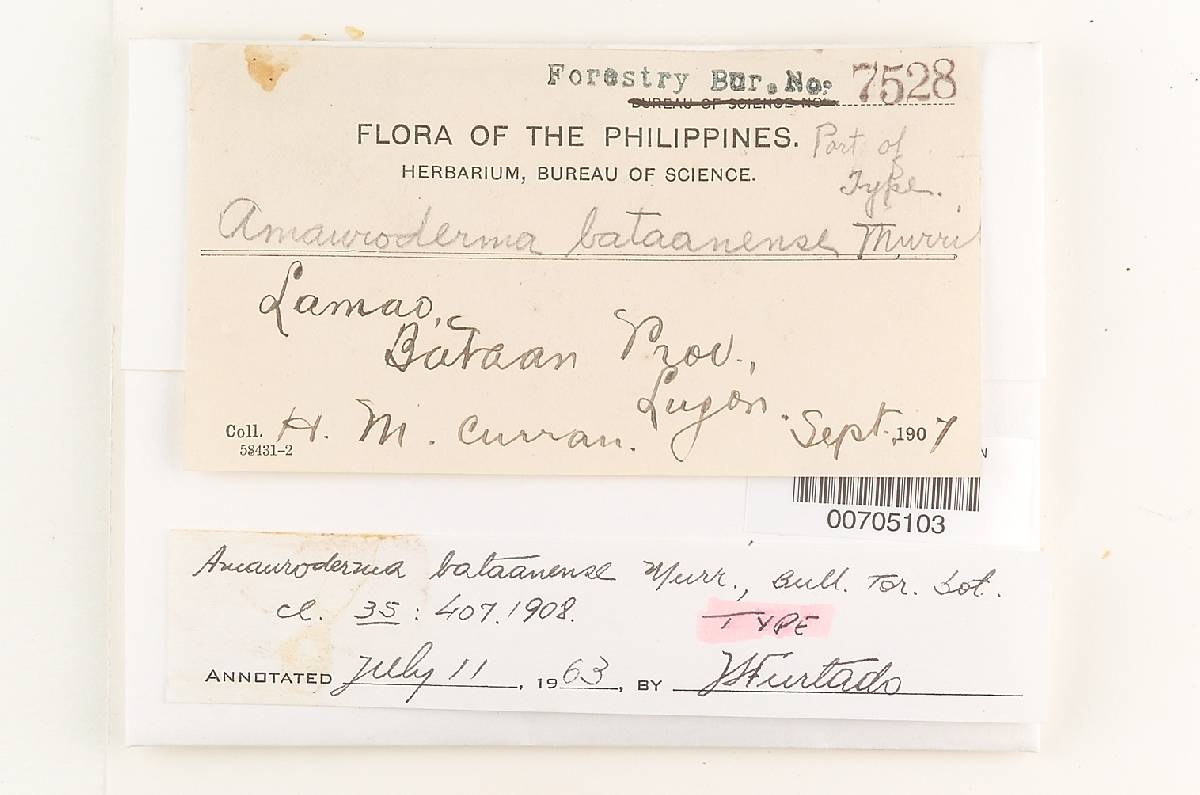 Forestry Bur. No. 7528
BUREAU OF SCIENCE NO.
FLORA OF THE PHILIPPINES. Part of
HERBARIUM, BUREAU OF SCIENCE. Type.
Amauroderma bataanense Murril
Lamao,
Bataan Prov.,
Luzon.
Coll. H. M. Curran. Sept. 1907
58431-2
N
00705103
Amauroderma bataanense Murr., Bull. Tor. bot.
cl. 35 : 407. 1908. TYPE
ANNOTATED July 11, 1963, BY JSFurtado